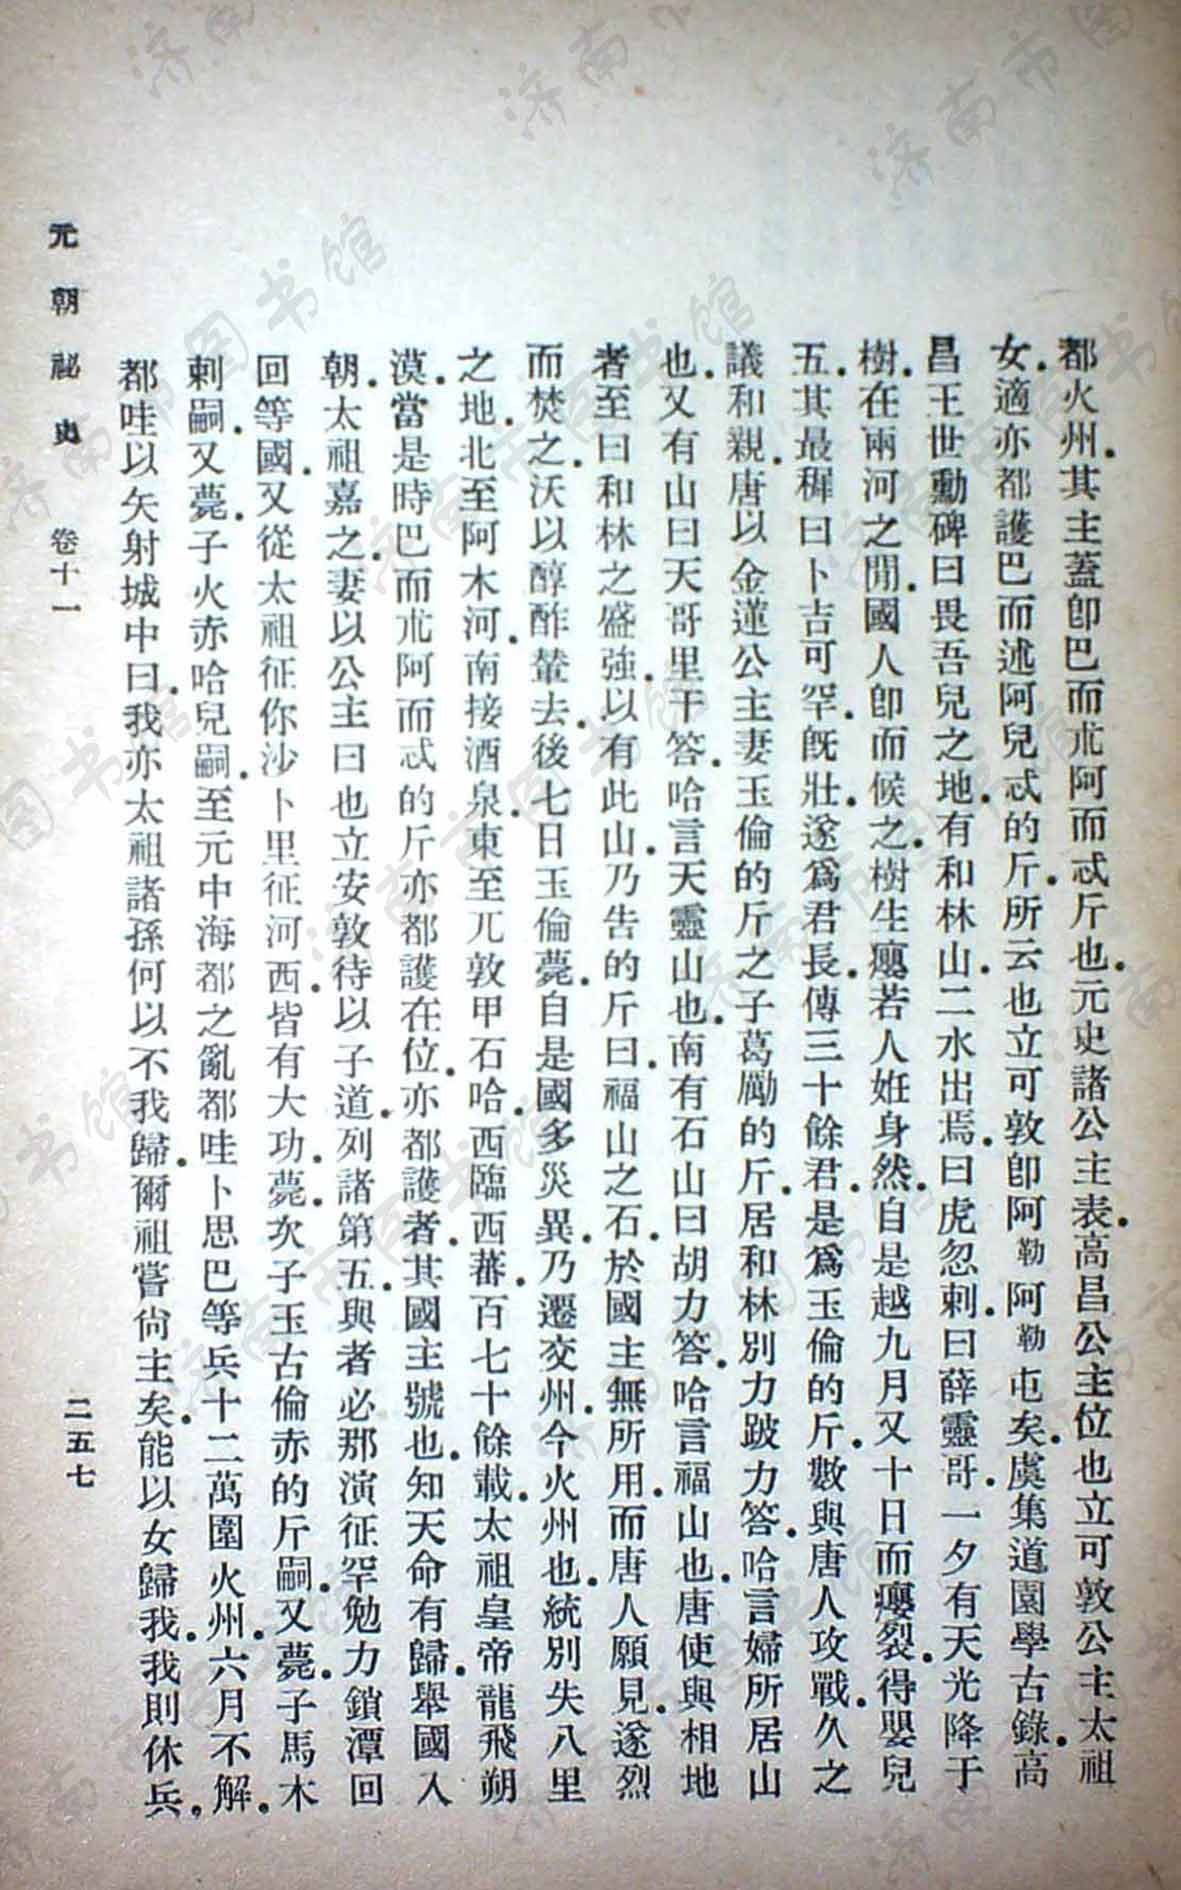 都火州。其主蓋卽巴而朮阿而忒斤也。元史諸公主表。高昌公主位也立可敦公主太祖
女。適亦都護巴而述阿兒忒的斤。所云也立可敦卽阿勒阿勒屯矣。虞集道園學古錄。高
昌王世勳碑曰畏吾兒之地。有和林山。二水出焉。曰虎忽剌。曰薛靈哥。一夕有天光降于
樹。在兩河之閒。國人卽而候之。樹生癭若人妊身然。自是越九月又十日而癭裂。得嬰兒
五。其最穉曰卜吉可罕。旣壯。遂爲君長。傳三十餘君。是爲玉倫的斤。數與唐人攻戰。久之
議和親。唐以金蓮公主妻玉倫的斤之子葛勵的斤。居和林別力跛力答。哈言婦所居山
也。又有山曰天哥里干答。哈言天靈山也。南有石山曰胡力答。哈言福山也。唐使與相地
者至。曰和林之盛強。以有此山。乃告的斤曰。福山之石。於國主無所用。而唐人願見。遂烈
而焚之。沃以醇酢。輦去。後七日玉倫薨。自是國多災異。乃遷交州。今火州也。統別失八里
之地。北至阿木河。南接酒泉。東至兀敦甲石哈。西臨西蕃。百七十餘載。太祖皇帝龍飛朔
漠。當是時巴而朮阿而忒的斤亦都護在位。亦都護者。其國主號也。知天命有歸。舉國入
朝。太祖嘉之。妻以公主曰也立安敦。待以子道。列諸第五。與者必那演征罕勉力鎖潭回
回等國。又從太祖征你沙卜里征河西。皆有大功。薨。次子玉古倫赤的斤嗣。又薨。子馬木
剌嗣。又薨。子火赤哈兒嗣。至元中海都之亂都哇卜思巴等兵十二萬圍火州。六月不解。
都哇以矢射城中曰。我亦太祖諸孫何以不我歸。爾祖嘗尙主矣。能以女歸我。我則休兵。
元朝祕史　卷十一　二五七
濟南市图书馆